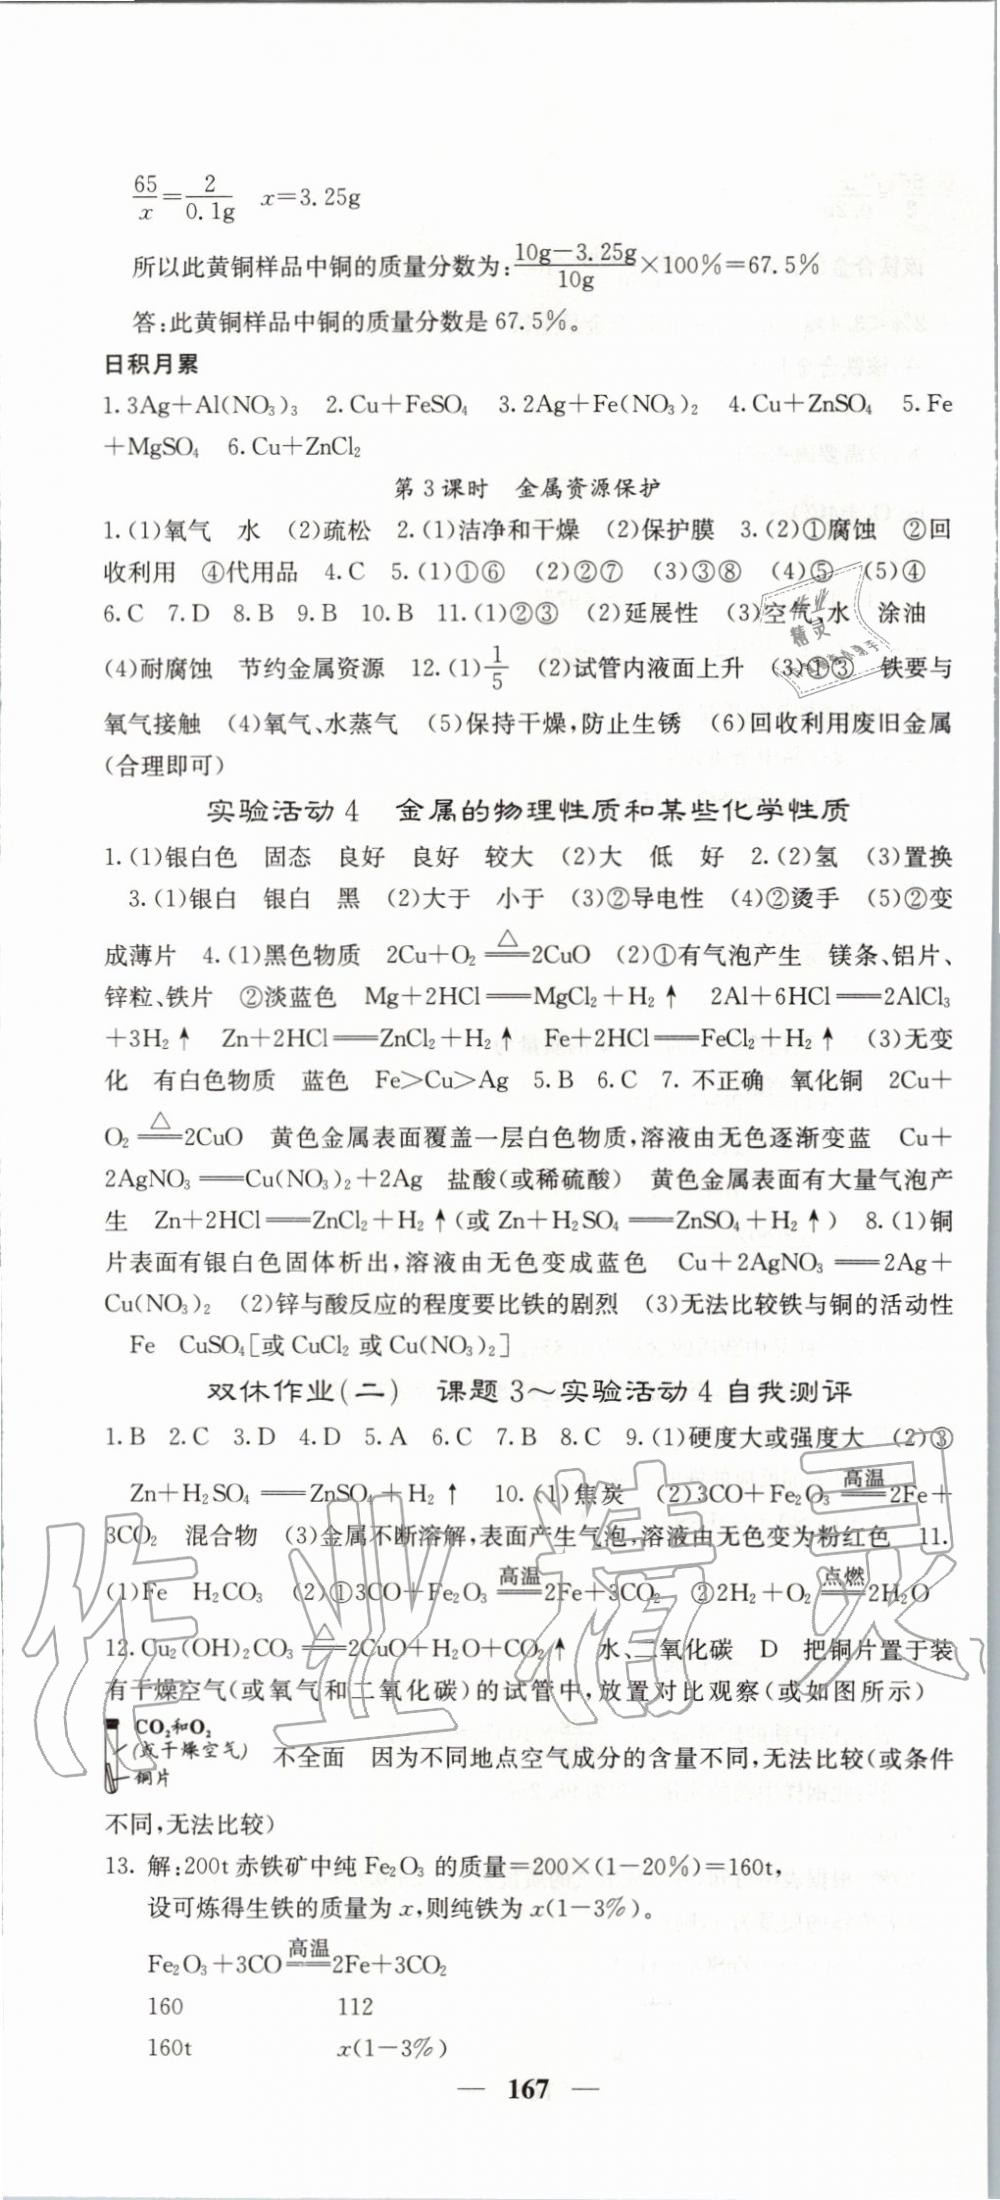 65/x=2/0.1g x=3.25g
所以此黄铜样品中铜的质量分数为:(10g-3.25g)/10g×100%=67.5%
答:此黄铜样品中铜的质量分数是67.5%。
日积月累
1.3Ag+Al(NO₃)₃ 2.Cu+FeSO₄ 3.2Ag+Fe(NO₃)₂ 4.Cu+ZnSO₄ 5.Fe
+MgSO₄ 6.Cu+ZnCl₂
第3课时 金属资源保护
1.(1)氧气 水 (2)疏松 2.(1)洁净和干燥 (2)保护膜 3.(2)①腐蚀 ②回
收利用 ④代用品 4.C 5.(1)①⑥ (2)②⑦ (3)③⑧ (4)⑤ (5)④
6.C 7.D 8.B 9.B 10.B 11.(1)②③ (2)延展性 (3)空气,水 涂油
(4)耐腐蚀 节约金属资源 12.(1)1/5 (2)试管内液面上升 (3)①③ 铁要与
氧气接触 (4)氧气、水蒸气 (5)保持干燥,防止生锈 (6)回收利用废旧金属
(合理即可)
实验活动4 金属的物理性质和某些化学性质
1.(1)银白色 固态 良好 良好 较大 (2)大 低 好 2.(2)氢 (3)置换
3.(1)银白 银白 黑 (2)大于 小于 (3)②导电性 (4)②烫手 (5)②变
成薄片 4.(1)黑色物质 2Cu+O₂ =△= 2CuO (2)①有气泡产生 镁条、铝片、
锌粒、铁片 ②淡蓝色 Mg+2HCl══MgCl₂+H₂↑ 2Al+6HCl══2AlCl₃
+3H₂↑ Zn+2HCl══ZnCl₂+H₂↑ Fe+2HCl══FeCl₂+H₂↑ (3)无变
化 有白色物质 蓝色 Fe>Cu>Ag 5.B 6.C 7.不正确 氧化铜 2Cu+
O₂ =△= 2CuO 黄色金属表面覆盖一层白色物质,溶液由无色逐渐变蓝 Cu+
2AgNO₃══Cu(NO₃)₂+2Ag 盐酸(或稀硫酸) 黄色金属表面有大量气泡产
生 Zn+2HCl══ZnCl₂+H₂↑(或Zn+H₂SO₄══ZnSO₄+H₂↑) 8.(1)铜
片表面有银白色固体析出,溶液由无色变成蓝色 Cu+2AgNO₃══2Ag+
Cu(NO₃)₂ (2)锌与酸反应的程度要比铁的剧烈 (3)无法比较铁与铜的活动性
Fe CuSO₄[或CuCl₂或Cu(NO₃)₂]
双休作业(二) 课题3~实验活动4自我测评
1.B 2.C 3.D 4.D 5.A 6.C 7.B 8.C 9.(1)硬度大或强度大 (2)③
Zn+H₂SO₄══ZnSO₄+H₂↑ 10.(1)焦炭 (2)3CO+Fe₂O₃ =高温= 2Fe+
3CO₂ 混合物 (3)金属不断溶解,表面产生气泡,溶液由无色变为粉红色 11.
(1)Fe H₂CO₃ (2)①3CO+Fe₂O₃ =高温= 2Fe+3CO₂ ②2H₂+O₂ =点燃= 2H₂O
12.Cu₂(OH)₂CO₃ =△= 2CuO+H₂O+CO₂↑ 水、二氧化碳 D 把铜片置于装
有干燥空气(或氧气和二氧化碳)的试管中,放置对比观察(或如图所示)
CO₂和O₂
(或干燥空气)
铜片
不全面 因为不同地点空气成分的含量不同,无法比较(或条件
不同,无法比较)
13.解:200t赤铁矿中纯Fe₂O₃的质量=200×(1-20%)=160t,
设可炼得生铁的质量为x,则纯铁为x(1-3%)。
Fe₂O₃+3CO =高温= 2Fe+3CO₂
160 112
160t x(1-3%)
— 167 —
作业精灵
作业
精灵